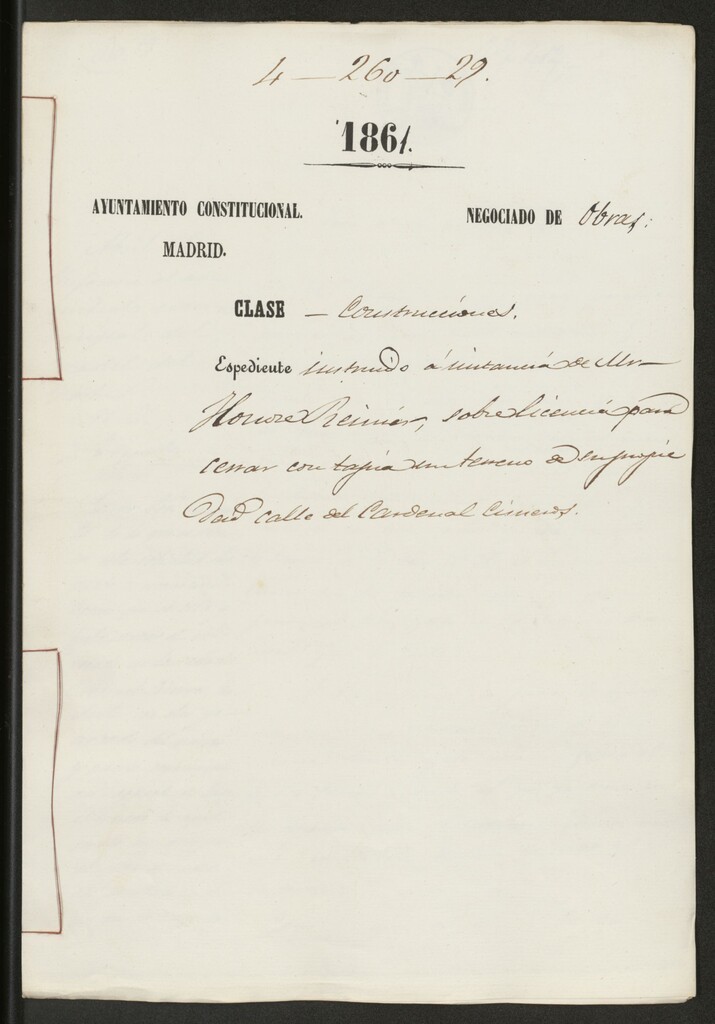 4 — 260 — 29.
1861.
AYUNTAMIENTO CONSTITUCIONAL.
NEGOCIADO DE Obras:
MADRID.
CLASE — Construcciones.
Espediente instruido á instancia de Mr
Honore Reinier, sobre licencia para
cerrar con tapia un terreno de su propie
dad calle del Cardenal Cisneros.